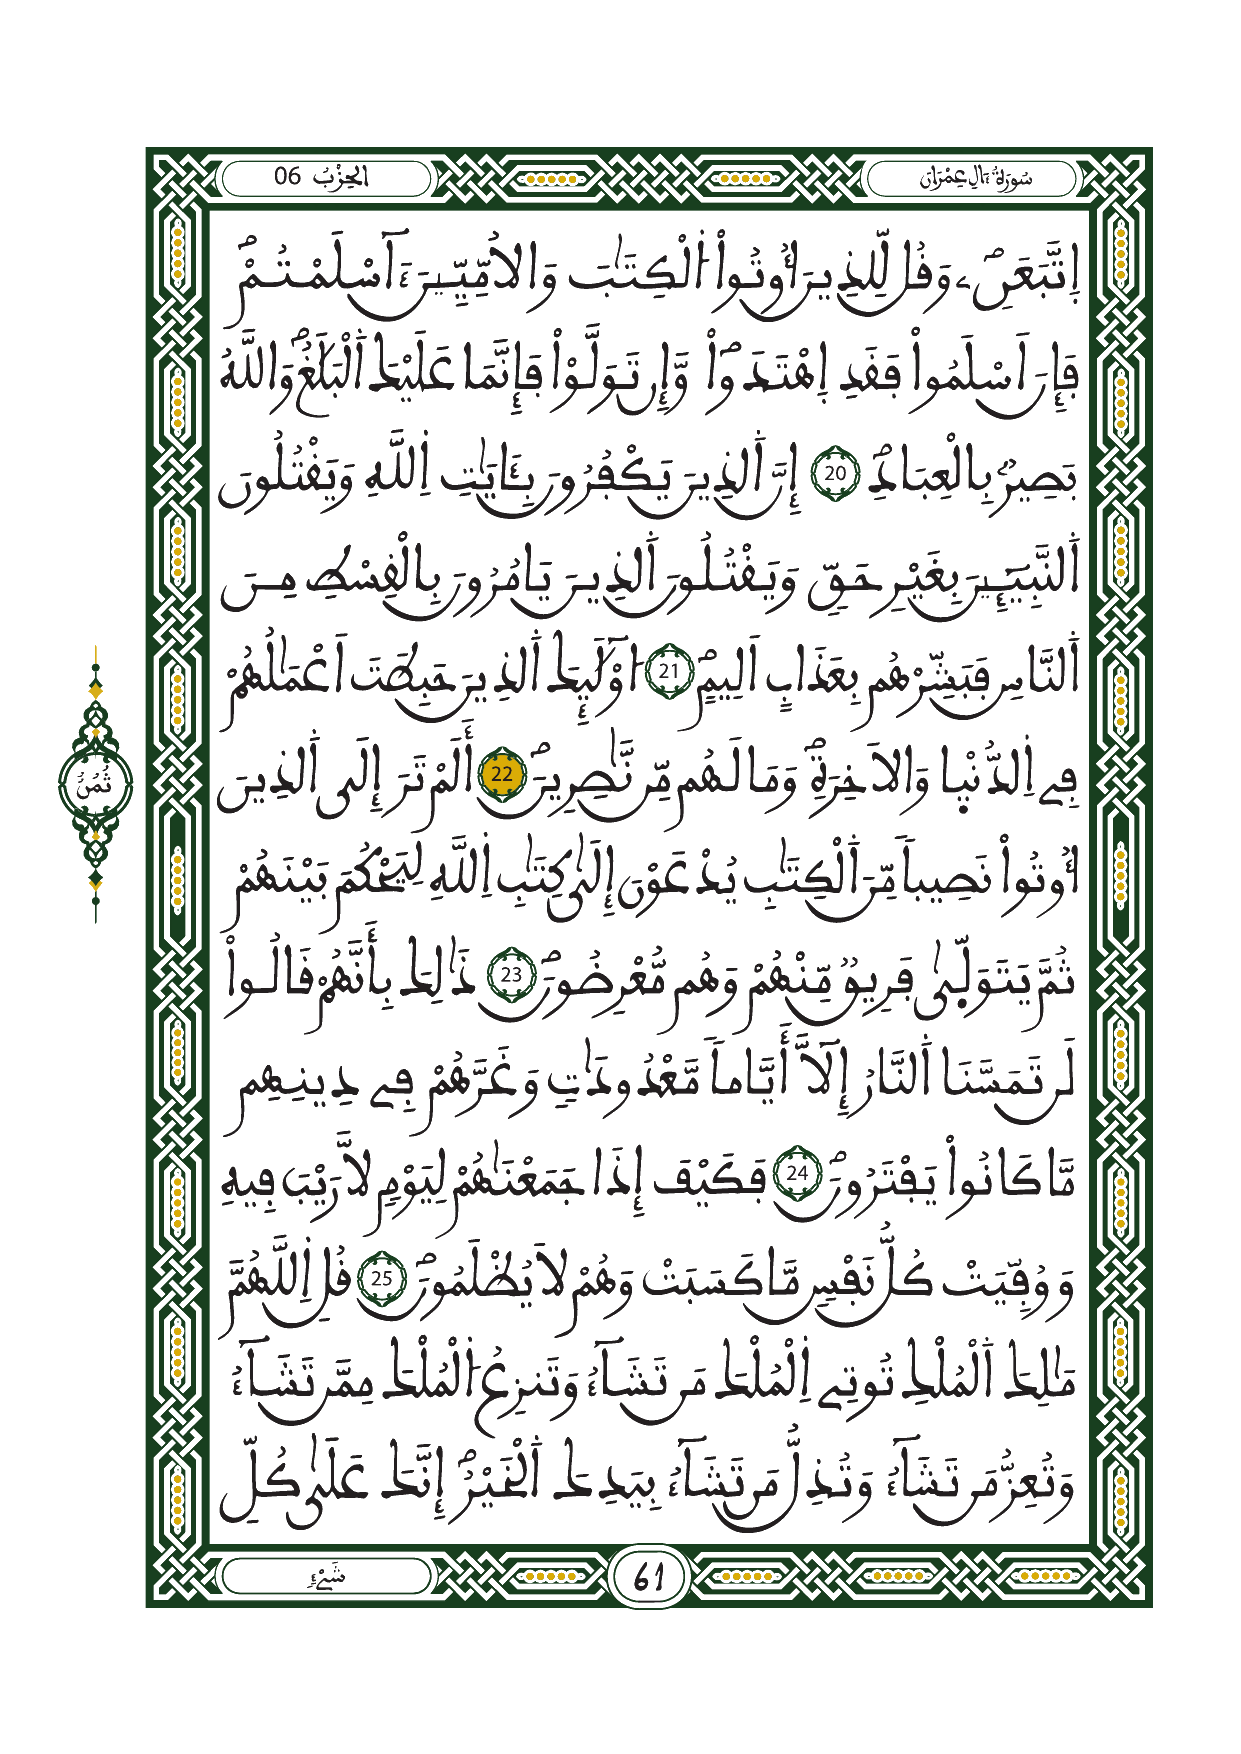 سُورَةُ ءَالِ عِمْرَانَ
الحِزْبُ 06
اِتَّبَعَنِۦ وَقُل لِّلذِينَ أُوتُواْ اُلْكِتَٰبَ وَالُامِّيِّـۧنَ ءَآسْلَمْتُمْ
فَإِنَ اَسْلَمُواْ فَقَدِ اِهْتَدَواْ وَّإِن تَوَلَّوْاْ فَإِنَّمَا عَلَيْكَ اَلْبَلَٰغُ وَاللَّهُ
بَصِيرُۢ بِالْعِبَادِ 20 إِنَّ اَلذِينَ يَكْفُرُونَ بِـَٔايَٰتِ اِللَّهِ وَيَقْتُلُونَ
اَلنَّبِيٓـِٕينَ بِغَيْرِ حَقٍّ وَيَقْتُلُونَ اَلذِينَ يَامُرُونَ بِالْقِسْطِ مِنَ
اَلنَّاسِ فَبَشِّرْهُم بِعَذَابٍ اَلِيمٍ 21 اُوْلَٰٓئِكَ اَلذِينَ حَبِطَتَ اَعْمَٰلُهُمْ
فِے اِلدُّنْي۪ا وَالَاخِرَةِ وَمَا لَهُم مِّن نَّٰصِرِينَ 22 أَلَمْ تَرَ إِلَى اَلذِينَ
أُوتُواْ نَصِيباٗ مِّنَ اَلْكِتَٰبِ يُدْعَوْنَ إِلَىٰ كِتَٰبِ اِللَّهِ لِيَحْكُمَ بَيْنَهُمْ
ثُمَّ يَتَوَلّ۪ىٰ فَرِيقٞ مِّنْهُمْ وَهُم مُّعْرِضُونَ 23 ذَٰلِكَ بِأَنَّهُمْ قَالُواْ
لَن تَمَسَّنَا اَلنَّارُ إِلَّآ أَيَّاماٗ مَّعْدُودَٰتٖ وَغَرَّهُمْ فِے دِينِهِم
مَّا كَانُواْ يَفْتَرُونَ 24 فَكَيْفَ إِذَا جَمَعْنَٰهُمْ لِيَوْمٖ لَّا رَيْبَ فِيهِ
وَوُفِّيَتْ كُلُّ نَفْسٖ مَّا كَسَبَتْ وَهُمْ لَا يُظْلَمُونَ 25 قُلِ اِللَّهُمَّ
مَٰلِكَ اَلْمُلْكِ تُوتِے اِلْمُلْكَ مَن تَشَآءُ وَتَنزِعُ اُلْمُلْكَ مِمَّن تَشَآءُ
وَتُعِزُّ مَن تَشَآءُ وَتُذِلُّ مَن تَشَآءُ بِيَدِكَ اَلْخَيْرُ إِنَّكَ عَلَىٰ كُلِّ
ثُمُنُ
61
شَےْءٖ